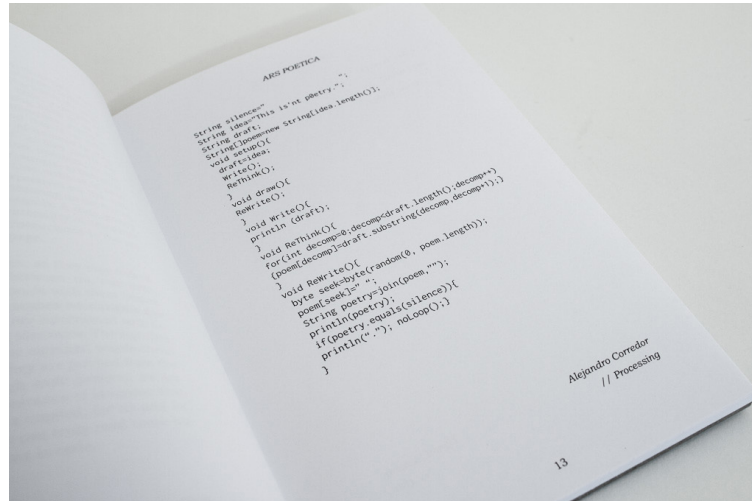 ARS POETICA
String silence="                 ";
String idea="This is'nt p0etry.";
String draft;
String[]poem=new String[idea.length()];
void setup(){
draft=idea;
Write();
ReThink();
}
void draw(){
ReWrite();
}
void Write(){
println (draft);
}
void ReThink(){
for(int decomp=0;decomp<draft.length();decomp++)
{poem[decomp]=draft.substring(decomp,decomp+1);}
}
void ReWrite(){
byte seek=byte(random(0, poem.length));
poem[seek]=" ";
String poetry=join(poem,"");
println(poetry);
if(poetry.equals(silence)){
println("."); noLoop();}
}
Alejandro Corredor
// Processing
13